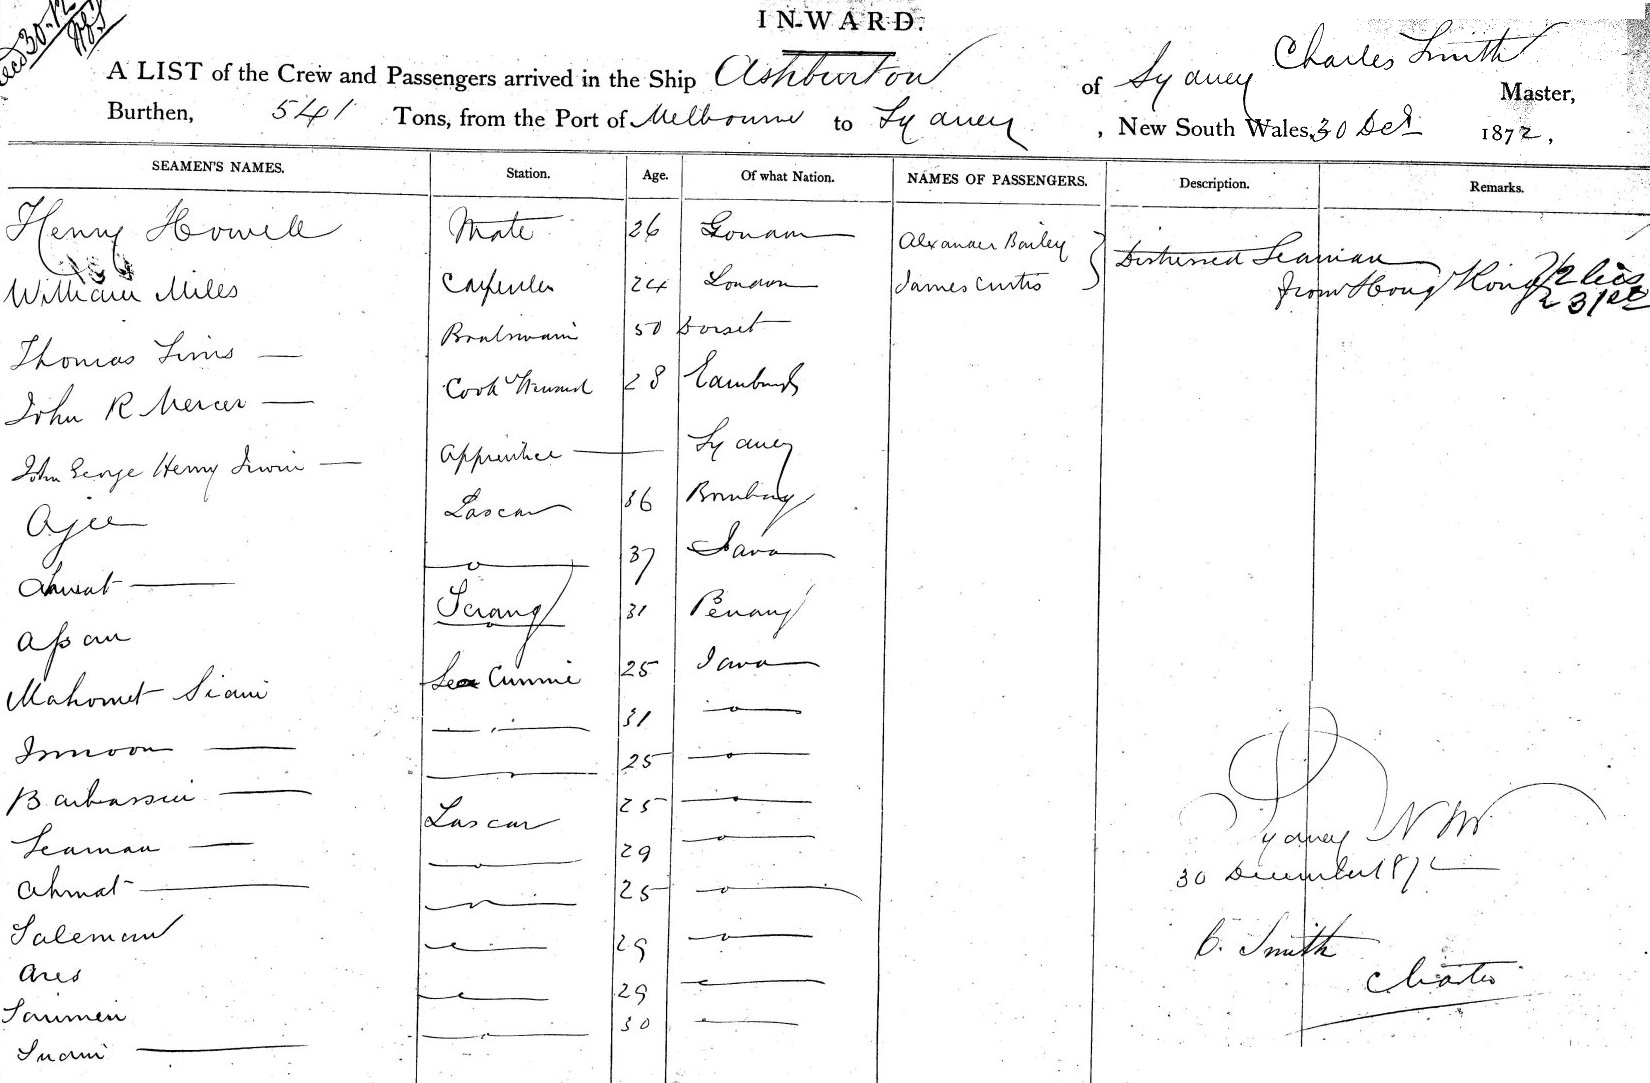 Recd 30.12
IN-WARD.
A LIST of the Crew and Passengers arrived in the Ship Ashburton of Sydney Charles Smith Master,
Burthen, 541 Tons, from the Port of Melbourne to Sydney, New South Wales, 30 Decr 1872,
SEAMEN'S NAMES. Station. Age. Of what Nation. NAMES OF PASSENGERS. Description. Remarks.
Henry Howell Mate 26 London Alexander Bailey Distressed Seaman
William Miles Carpenter 24 London James Curtis from Hong Kong
Thomas Sims — Boatswain 50 Dorset
John R Mercer — Cook Steward 28 Edinburgh
John George Henry Irwin — Apprentice — Sydney
Ajee Lascar 36 Bombay
Ahmat — — o — 37 Java
Assan Serang 31 Penang
Mahomet Siami Sea Cunnie 25 Java
Inmoon — — 31 — o —
Barbassin — — 25 — o —
Seaman — Lascar 25 — o —
Ahmat — — o — 29 — o —
Saleman — 25 — o —
Ares — 29 — o —
Sarimen — 29 —
Suami — — o — 30 —
Sydney NSW
30 December 1872
C. Smith
Master